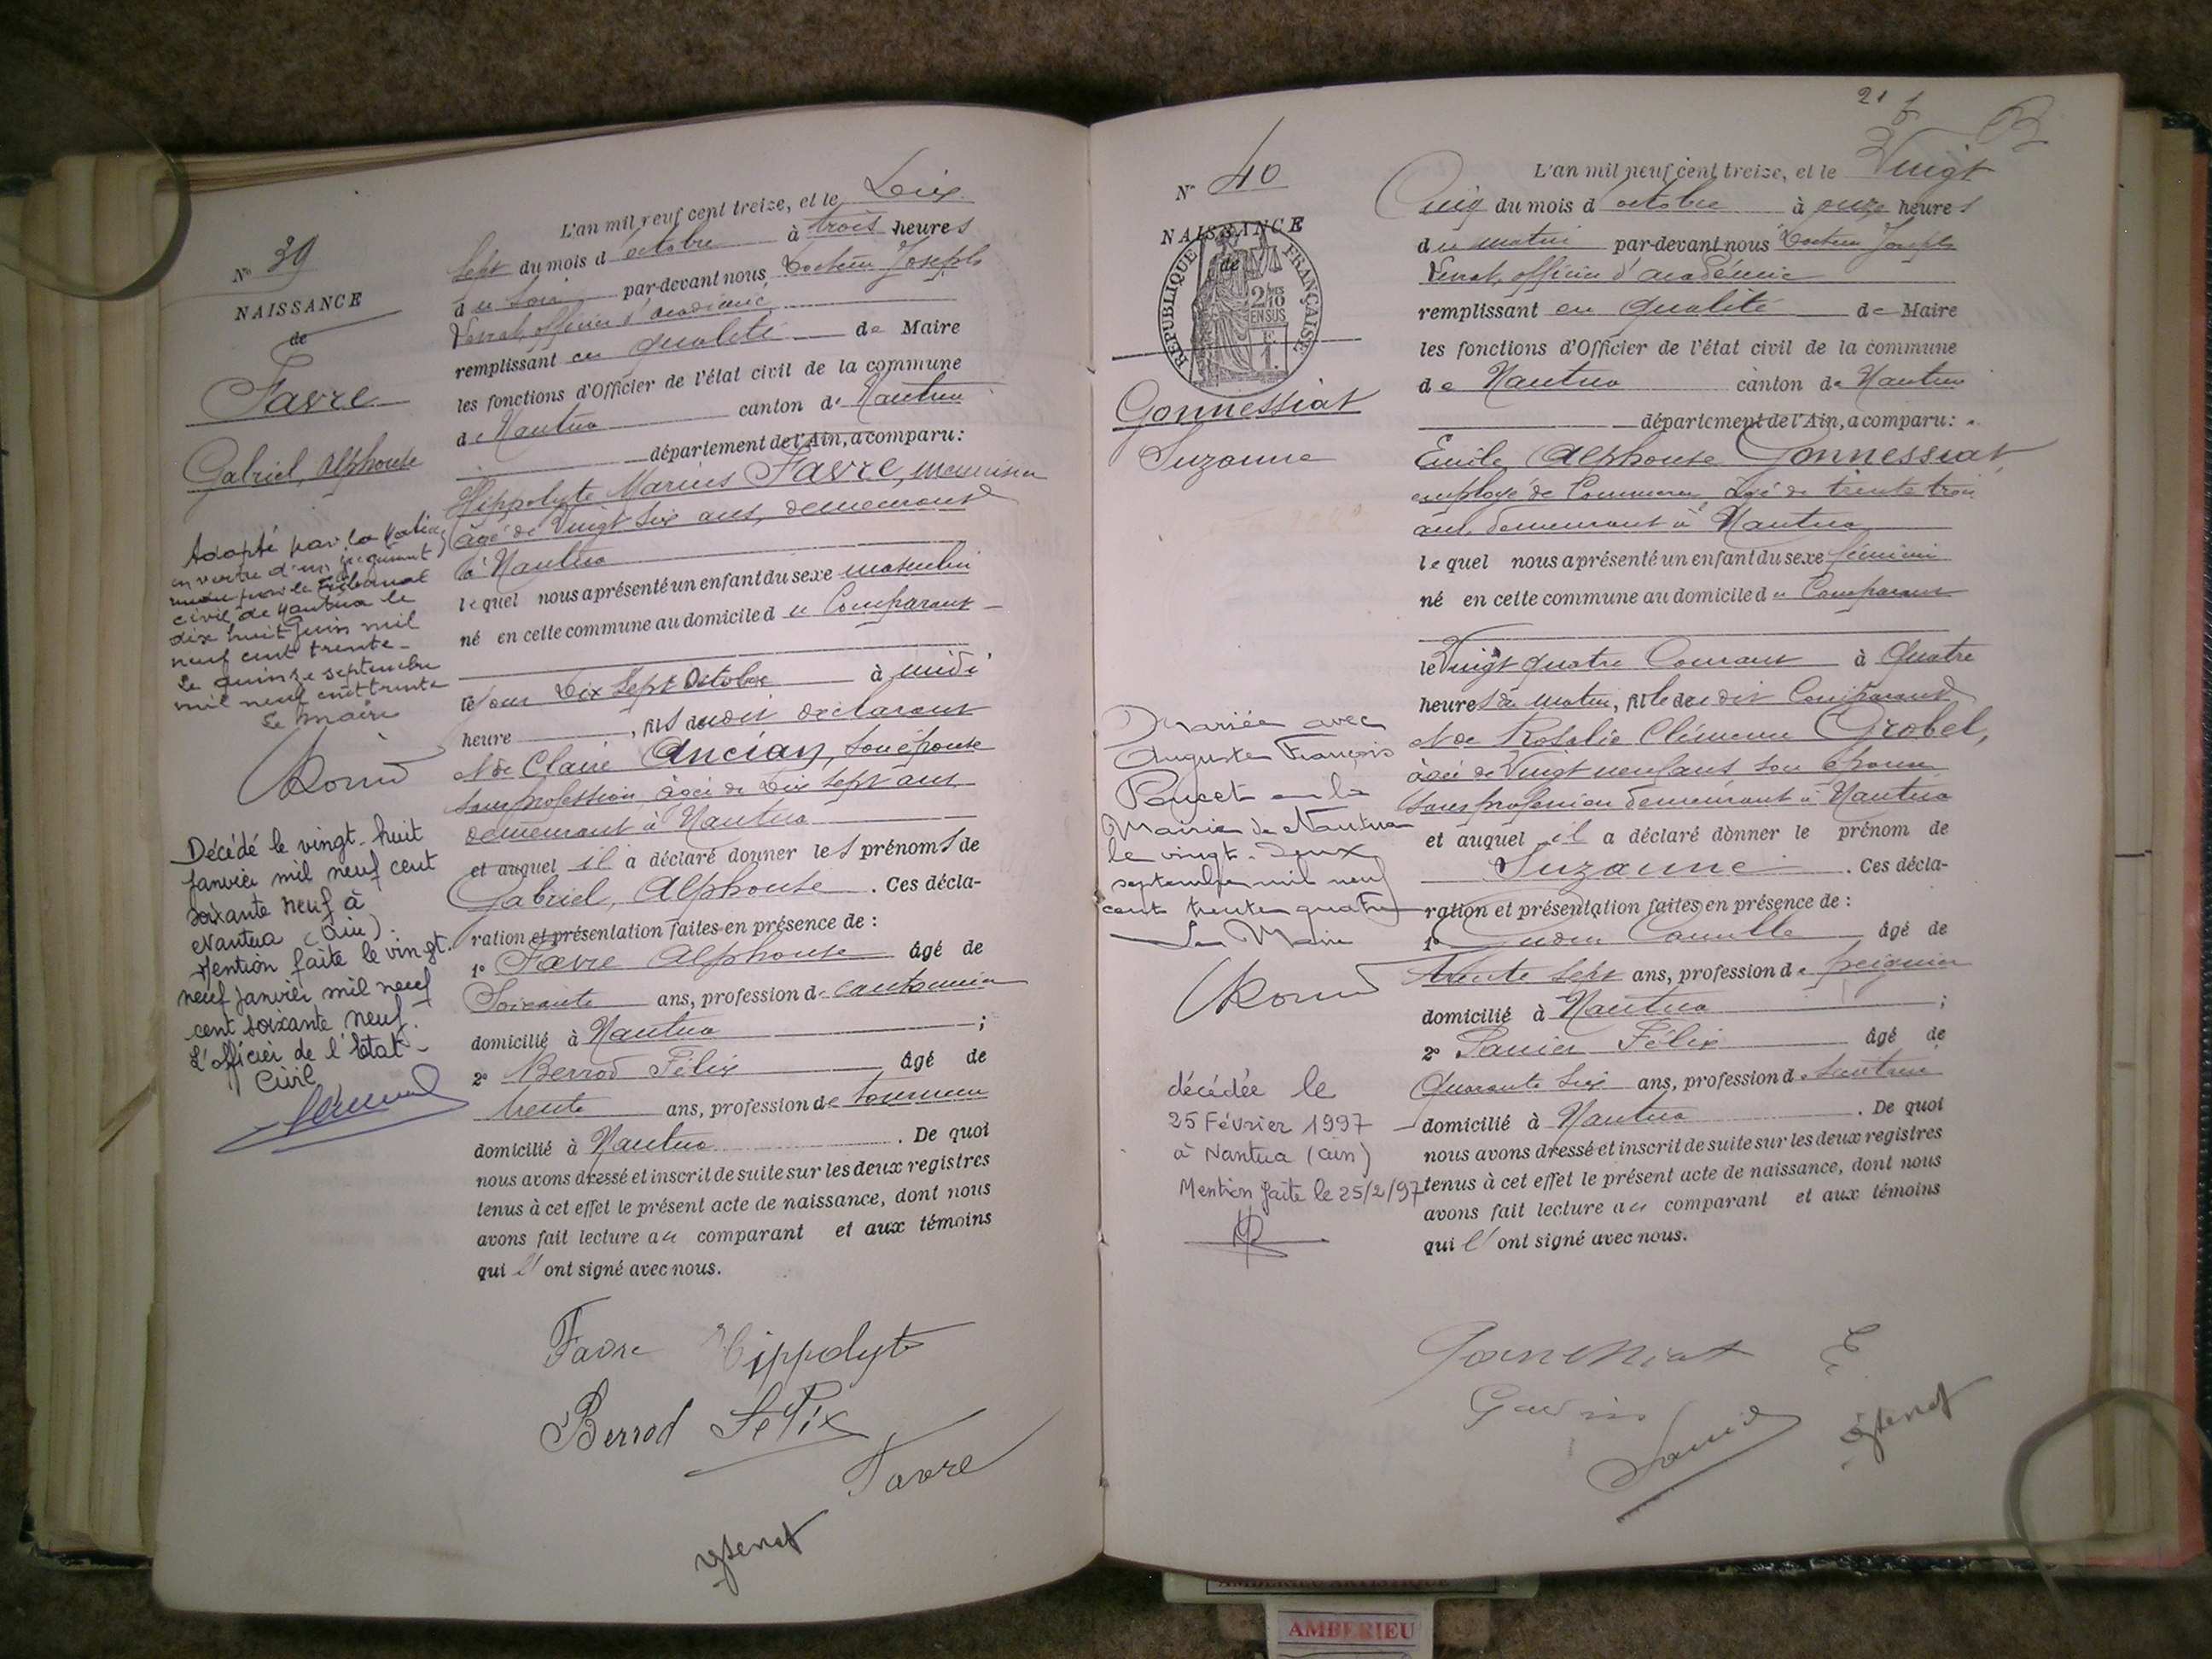 N° 39
NAISSANCE
de
Favre
Gabriel, Alphonse
Adopté par la Nation
en vertu d'un jugement
rendu par le Tribunal
civil de Nantua le
dix huit Juin mil
neuf cent trente_
Le quinze septembre
mil neuf cent trente
Le Maire
Décédé le vingt-huit
Janvier mil neuf cent
soixante neuf à
Nantua (Ain).
Mention faite le vingt-
neuf Janvier mil neuf
cent soixante neuf.
L'officier de l'Etat-
Civil
L'an mil neuf cent treize, et le Dix
Sept du mois d'octobre à trois heures
du soir par-devant nous Docteur Joseph
officier d'académie
remplissant en qualité de Maire
les fonctions d'Officier de l'état civil de la commune
de Nantua canton de Nantua
département de l'Ain, a comparu:
Hippolyte Marius Favre, menuisier
âgé de Vingt Six ans, demeurant
à Nantua
lequel nous a présenté un enfant du sexe masculin
né en cette commune au domicile du Comparant
le jour Dix Sept Octobre à midi
heure , fils dudit déclarant
et de Claire Ancian, son épouse
sans profession, âgée de Dix sept ans
demeurant à Nantua
et auquel il a déclaré donner les prénoms de
Gabriel, Alphonse . Ces décla-
ration et présentation faites en présence de :
1° Favre Alphonse âgé de
Soixante ans, profession de cantonnier
domicilié à Nantua ;
2° Berrod Félix âgé de
trente ans, profession de tourneur
domicilié à Nantua . De quoi
nous avons dressé et inscrit de suite sur les deux registres
tenus à cet effet le présent acte de naissance, dont nous
avons fait lecture au comparant et aux témoins
qui l' ont signé avec nous.
Favre Hippolyte
Berrod Félix
Favre
21
N° 40
NAISSANCE
de
RÉPUBLIQUE FRANÇAISE
2/10 EN SUS
Gonnessiat
Suzanne
Mariée avec
Auguste François
Poncet en la
Mairie de Nantua
le vingt-deux
septembre mil neuf
cent trente quatre
Le Maire
décédée le
25 Février 1997
à Nantua (Ain)
Mention faite le 25/2/97
L'an mil neuf cent treize, et le Vingt
Cinq du mois d'octobre à onze heures
du matin par-devant nous Docteur Joseph
officier d'académie
remplissant en qualité de Maire
les fonctions d'Officier de l'état civil de la commune
de Nantua canton de Nantua
département de l'Ain, a comparu:
Emile Alphonse Gonnessiat,
employé de Commerce âgé de trente trois
ans, demeurant à Nantua
lequel nous a présenté un enfant du sexe féminin
né en cette commune au domicile du Comparant
le Vingt quatre Courant à Quatre
heures du matin, fille dudit Comparant
et de Rosalie Clémence Grobel,
âgée de Vingt neuf ans son épouse
sans profession demeurant à Nantua
et auquel il a déclaré donner le prénom de
Suzanne . Ces décla-
ration et présentation faites en présence de :
1° Camille âgé de
Trente Sept ans, profession de
domicilié à Nantua ;
2° Félix âgé de
Quarante Six ans, profession de
domicilié à Nantua . De quoi
nous avons dressé et inscrit de suite sur les deux registres
tenus à cet effet le présent acte de naissance, dont nous
avons fait lecture au comparant et aux témoins
qui l' ont signé avec nous.
Gonnessiat E
AMBERIEU